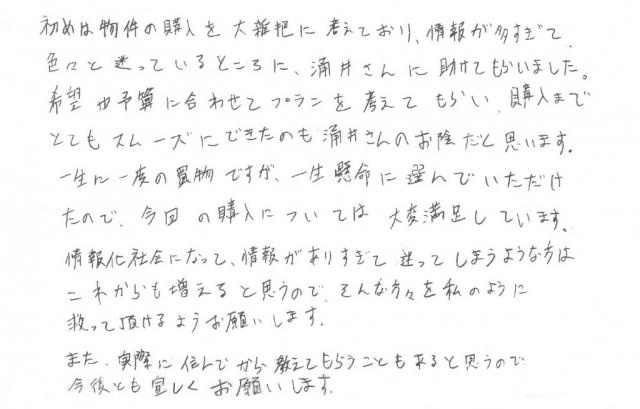 初めは物件の購入を大雑把に考えており、情報が多すぎて、
色々と迷っているところに、涌井さんに助けてもらいました。
希望や予算に合わせてプランを考えてもらい、購入まで
とてもスムーズにできたのも涌井さんのお陰だと思います。
一生に一度の買物ですが、一生懸命に選んでいただけ
たので、今回の購入については大変満足しています。
情報化社会になって、情報がありすぎて迷ってしまうような方は
これからも増えると思うので、そんな方々を私のように
救って頂けるようお願いします。
また、実際に住んでから教えてもらうことも来ると思うので
今後とも宜しくお願いします。